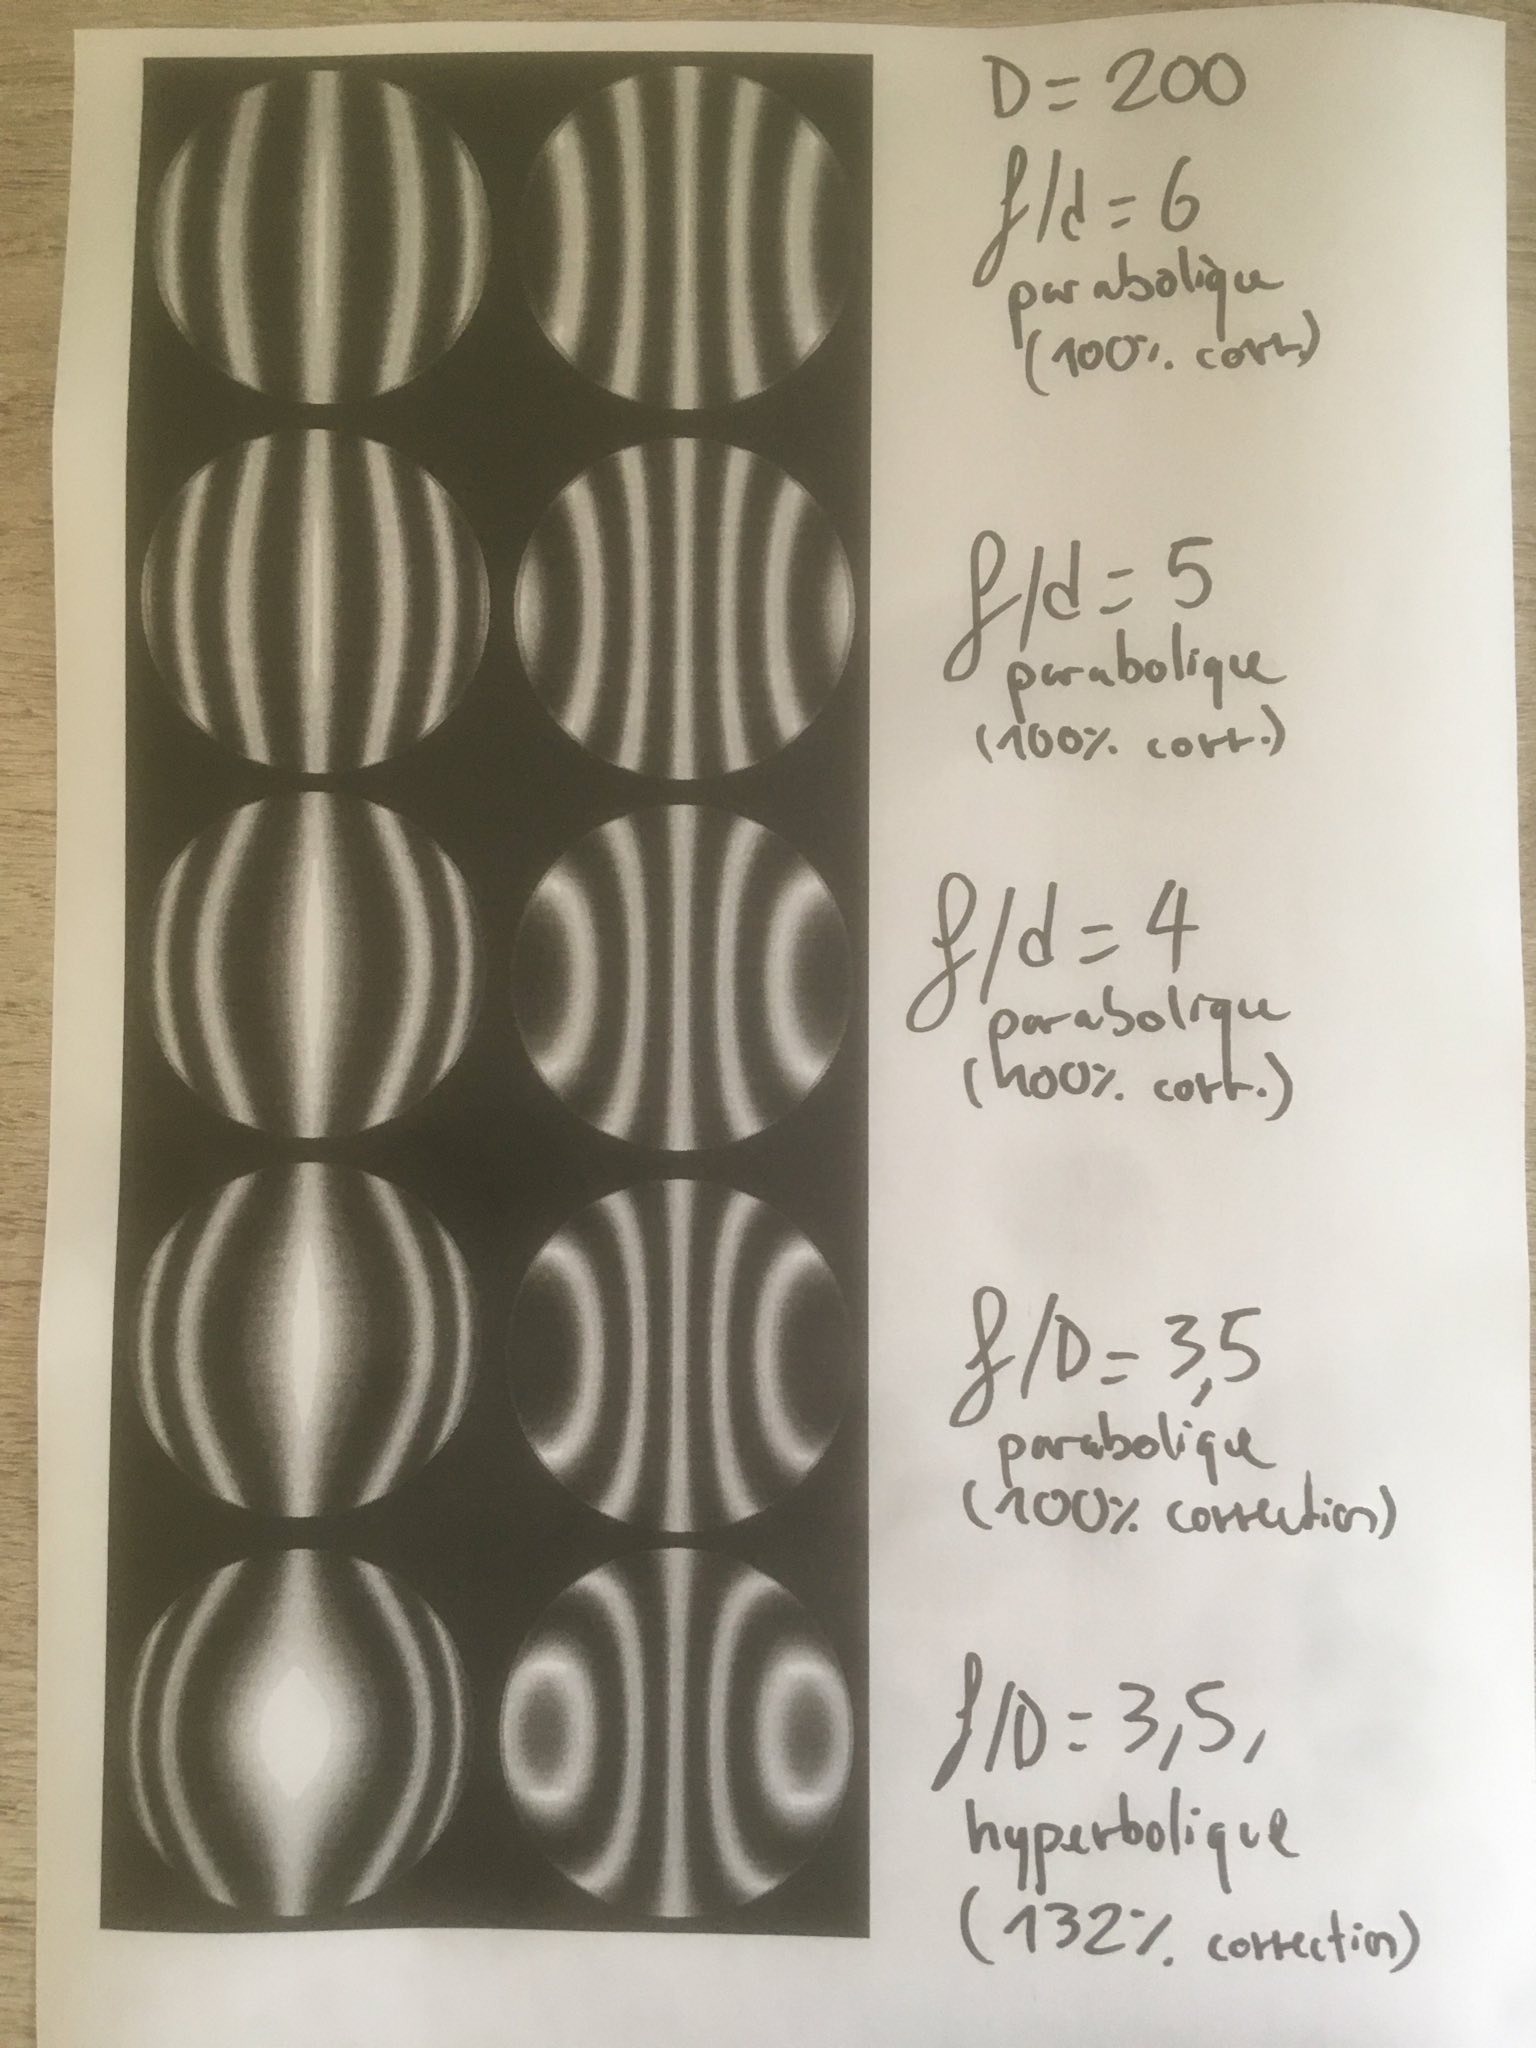 D = 200
f/d = 6
parabolique
(100% corr.)
f/d = 5
parabolique
(100% corr.)
f/d = 4
parabolique
(100% corr.)
f/D = 3,5
parabolique
(100% correction)
f/D = 3,5,
hyperbolique
(132% correction)